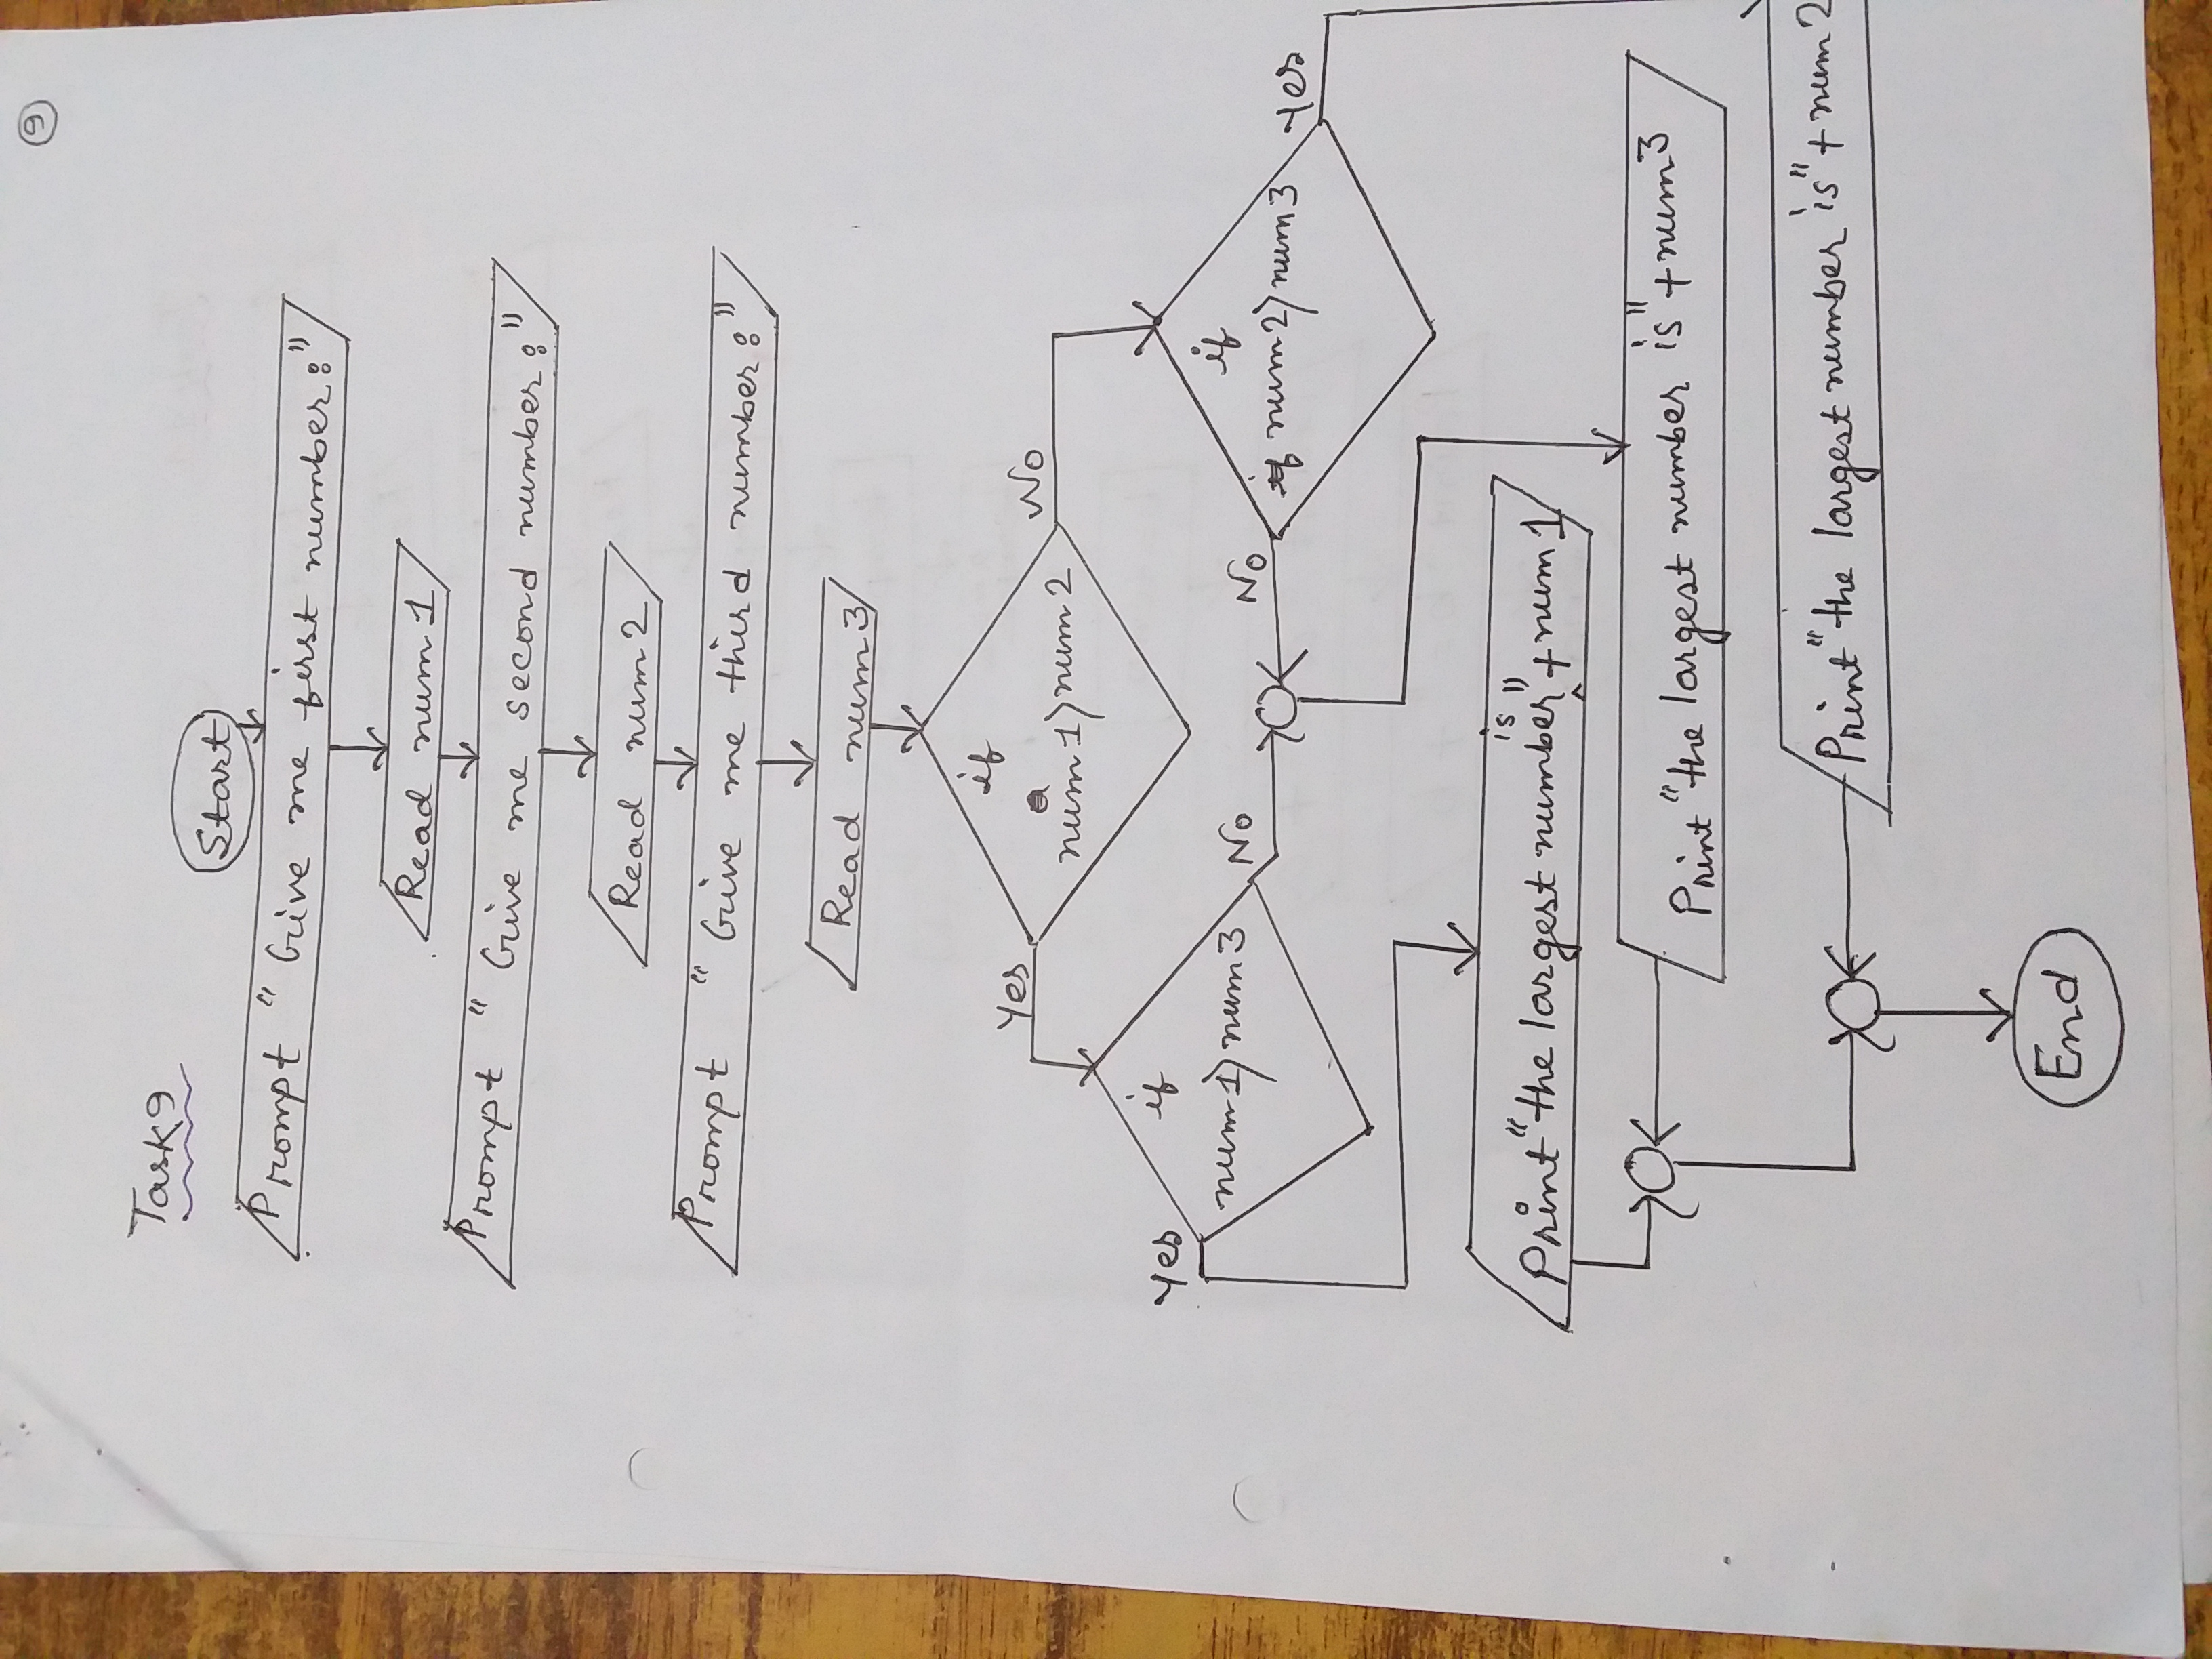 9
Task 9
Start
Prompt " Give me first number:"
Read num1
Prompt " Give me second number:"
Read num2
Prompt " Give me third number:"
Read num3
if
num1>num2
Yes
No
if
num1>num3
Yes
No
if
num2>num3
No
Yes
Print "the largest number is" + num1
Print "the largest number is" + num3
Print "the largest number is" + num2
End